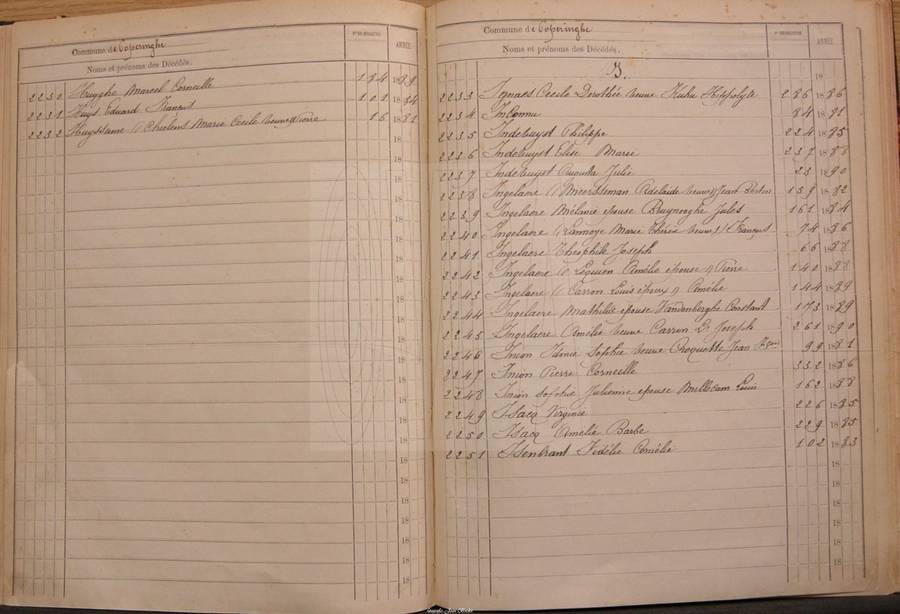 Commune de Poperinghe
N° DU REGISTRE
ANNÉE
Noms et prénoms des Décédés.
2230 Huyghe Marcel Corneille 184 1889
2231 Huys Eduard François 101 1884
2232 Marie Cecile veuve 16 1881
18
18
18
18
18
18
18
18
18
18
18
18
18
18
18
18
18
18
18
18
18
18
18
Commune de Poperinghe
N° DU REGISTRE
ANNÉE
Noms et prénoms des Décédés.
I. 18
2233 Cecile Dorothée veuve Hippolyte 286 1886
2234 Inconnu 84 1881
2235 Indehuyst Philippe 224 1885
2236 Indehuyst Elise Marie 237 1888
2237 Indehuyst Julie 23 1890
2238 Ingelaere Meersseman Adelaïde veuve Jean 139 1882
2239 Ingelaere Mélanie épouse Bruyneoghe Jules 161 1884
2240 Ingelaere Lannoye Marie Thérèse veuve François 74 1886
2241 Ingelaere Théophile Joseph 66 1888
2242 Ingelaere Lequien Amélie épouse Pierre 140 1888
2243 Ingelaere Carron Louis époux Amélie 144 1889
2244 Ingelaere Mathilde épouse Vandenberghe Constant 173 1889
2245 Ingelaere Amélie veuve Carron L. Joseph 261 1890
2246 Inion Sophie veuve Croquette Jean 99 1881
2247 Inion Pierre Corneille 332 1886
2248 Inion Sophie Julienne épouse Louis 162 1888
2249 Isacq Virginie 226 1885
2250 Isacq Amélie Barbe 229 1885
2251 Isenbrant Fidélie Comélie 102 1883
18
18
18
18
18
18